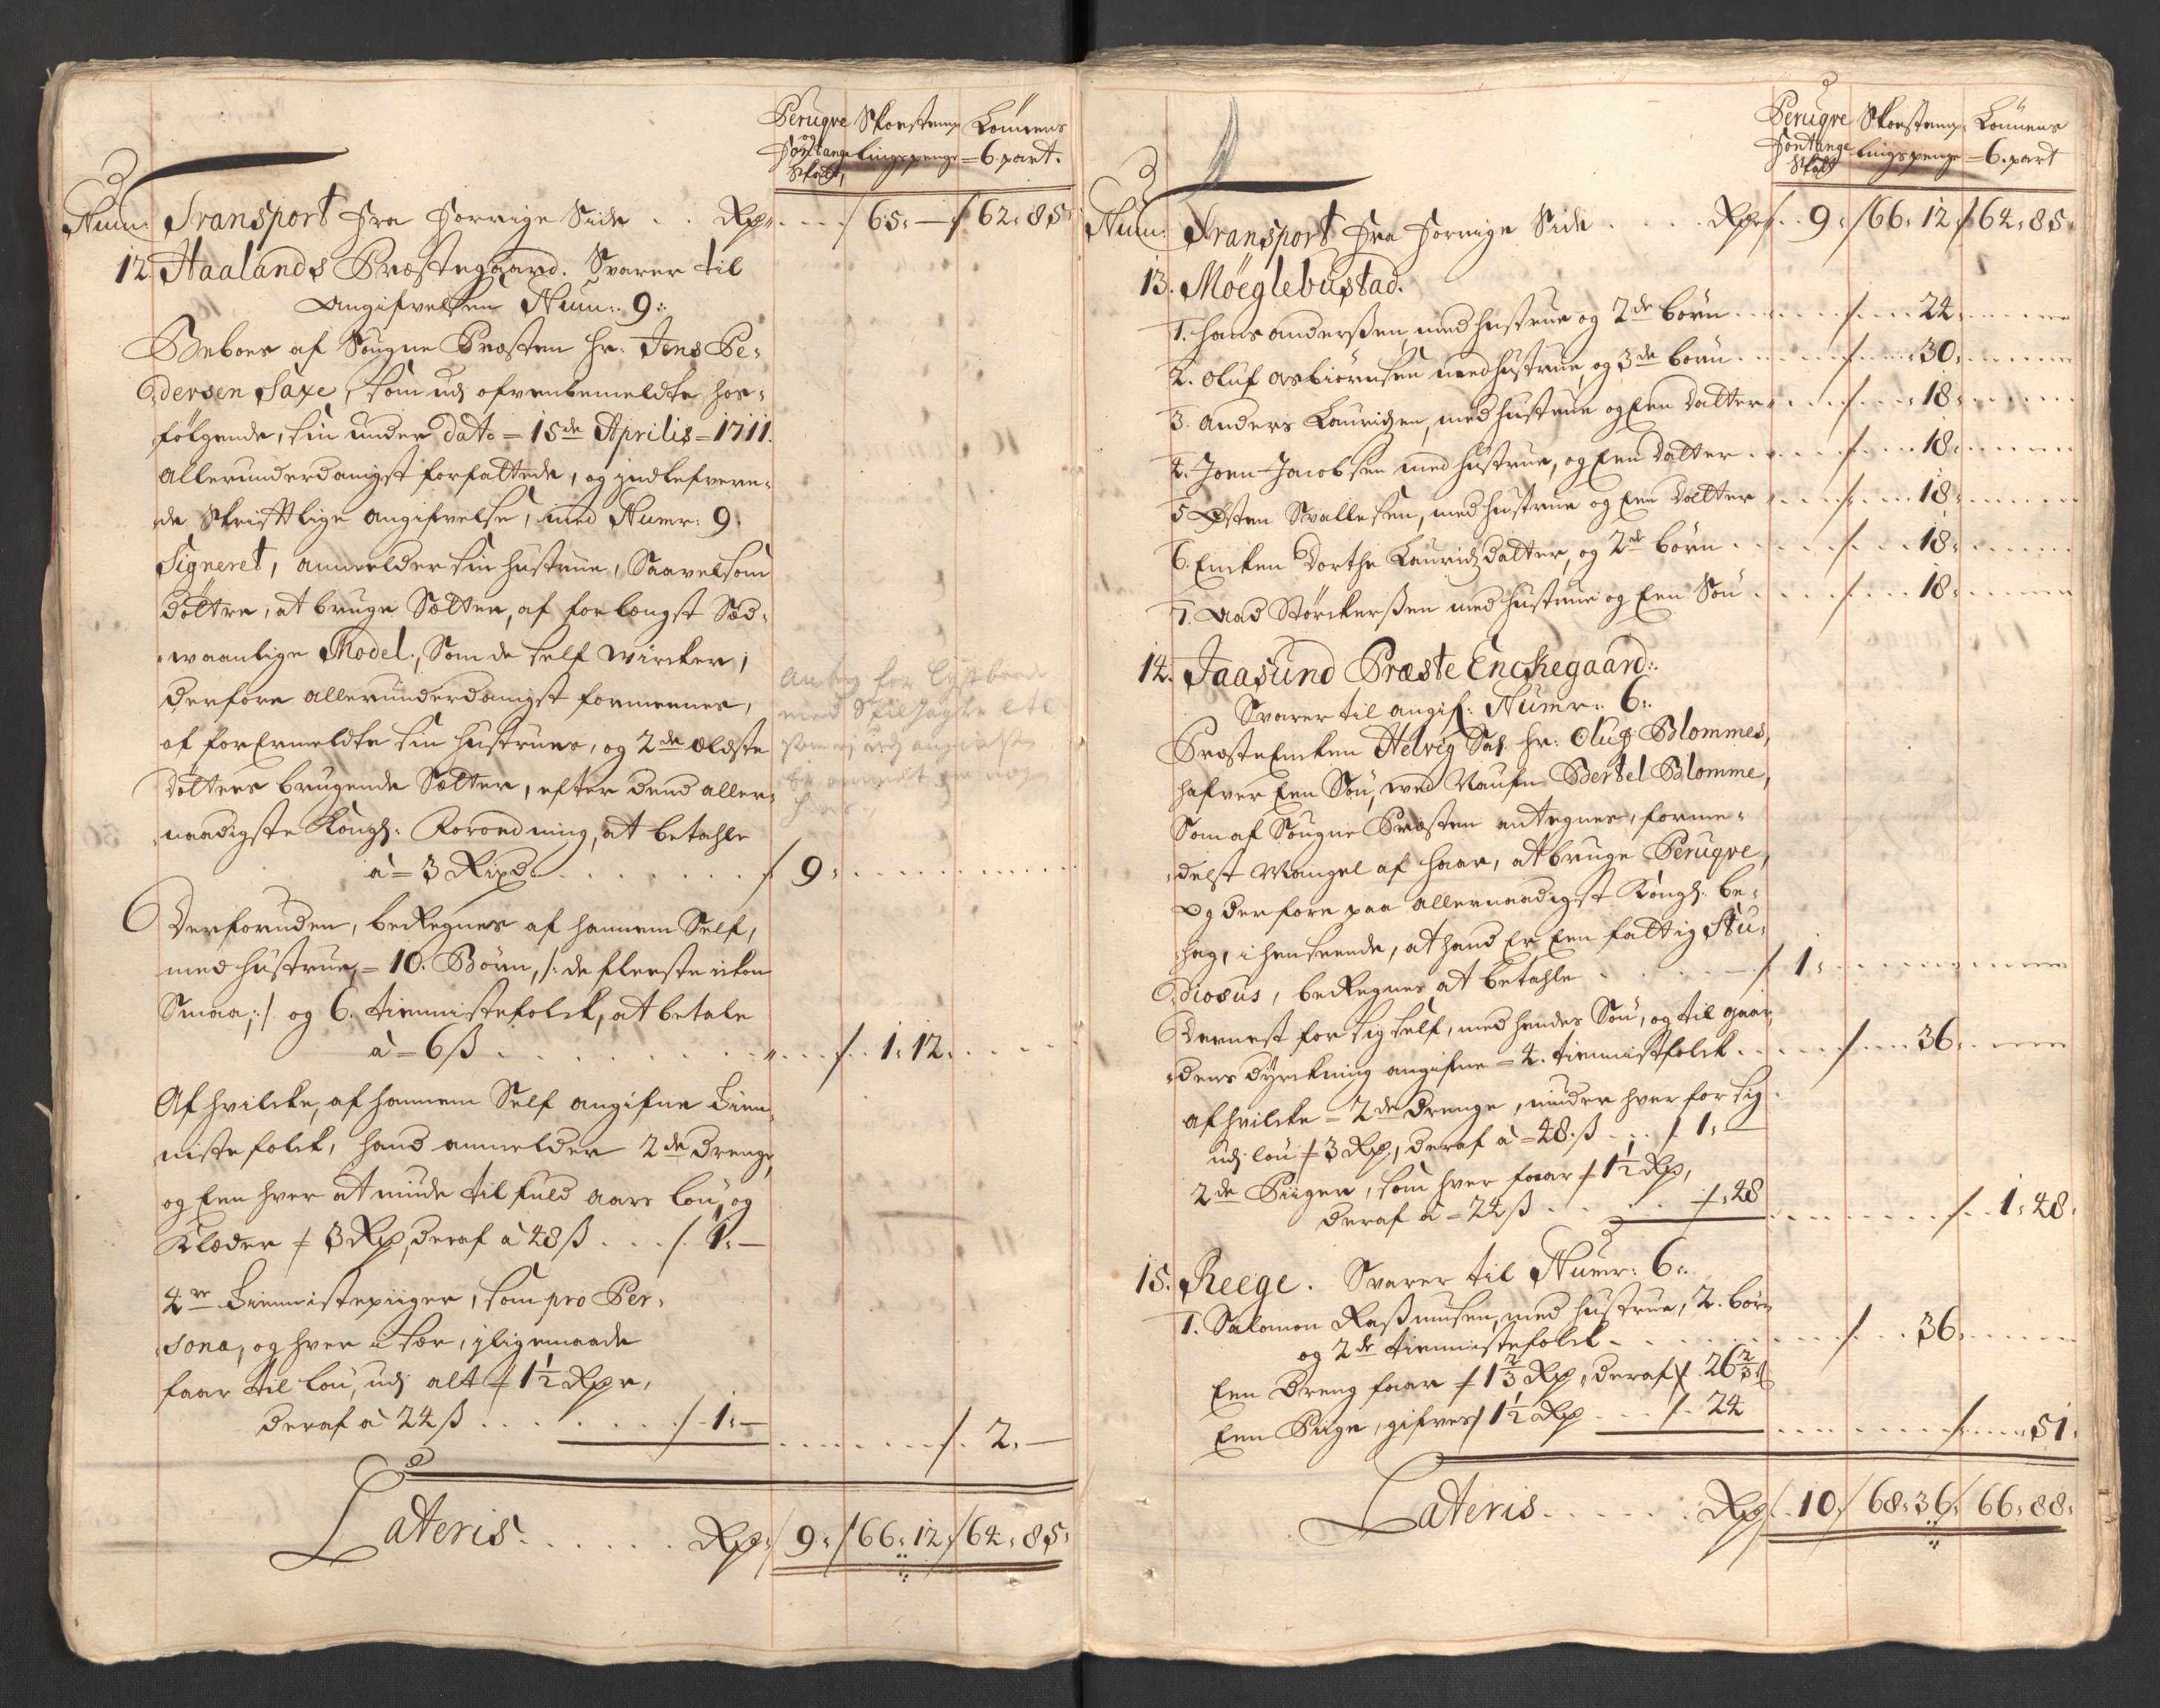 Perugve Skorstemp Lönnens
og
Fontange lingspenge 6. part.
Skatt,
Num: Transport fra forrige Side . . Rpr. . . . / 65. — / 62. 85.
12. Haalands Præstegaard. Svarer til
Angifvelsen Num: 9:
Beboes af Sougne Præsten hr. Jens Pe-
dersen Saxe, som udj ofvenbemeldte hos-
følgende, sin under dato 15de Aprilis 1711.
Allerunderdanigst forfattede, og indlefvere-
de Skrifttlige angifvelse, med Numr: 9.
Signeret, anmelder sin hustrue, Saavelsom
döttre, at bruge Setter, af forlængst Sæd-
vaanlige Model, Som de self wircker,
derfore allerunderdanigst formeenes,
af forermeldte sin hustrues, og 2de Eldste
Dötters brugende Setter, efter dend aller-
naadigste Kongl: Forordning, at betahle
à 3 Rixd. . . . . . . . / 9.
Derforuden, beregnes af hannem Self,
med hustrue, 10. Börn, /: de fleeste ickon
Smaa, :/ og 6. tienistefolck, at betale
à 6 ß . . . . . . . . . . . / 1. 12.
Af hvilcke, af hannem Self angifne Tien-
nistefolck, hand anmelder 2de drenge,
og Een hver at niude til fuld aars lön, og
Klæder / 3 Rp, deraf à 48 ß . . . / 1. —
4re Tiennistepiiger, som pro Per-
sona, og hver i sær, iligemaade
faar til lön, udj alt / 1½ Rpr,
deraf à 24 ß . . . . . . . / 1. —
. . . . . / 2. —
Lateris . . . . . . Rp. / 9. / 66. 12. / 64. 85.
Perugve Skorstemp Lönnens
Fontange lingspenge 6. part
Skatt
Num: Transport fra forrige Side . . . . Rpr. . 9. / 66. 12. / 64. 85.
13. Möeglebustad.
1. Hans anderßen, med hustrue og 2de börn . . . . / . . 24.
2. Oluf Asbiörnsen med hustrue, og 3de börn . . . . / . . 30.
3. Anders Lauridzen, med hustrue og Een datter . . . / . . 18.
4. Joen Jacobsen med hustrue, og Een datter . . . / . . 18.
5 Östen Svallesen, med hustrue og Een datter . . . / . . 18.
6. Encken Dorthe Lauridzdatter, og 2de börn . . . . / . . 18.
7. Aad Störckerßen med hustrue og Een Sön . . . . / . . 18.
14. Jaasund Præste Enckegaard:
Svarer til angif: Numr: 6:
Præste Encken Helvig Sal. hr: Oluf Blommes,
hafver Een Sön, ved Naufn Bertel Blomme,
Som af Sougne Præsten antegnes, forme-
delst Mangel af haar, at bruge Perugve,
og derfore paa allernaadigst Kongl: be-
hag, i henseende, at hand Er Een fattig Stu-
diosus, beregnes at betahle . . . . . / 1.
Dernest for sig self, med hendes Sön, og til gaar-
dens dyrckning angifne 4. tiennistfolck . . . . / . . 36.
af hvilcke 2de drenge, niuder hver for sig
udj lön / 3 Rp, deraf à 48. ß . . . / 1. —
2de Piiger, som hver faar / 1½ Rp,
deraf à 24 ß . . . . . /. 48
. . . . . / . 1. 48.
15. Reege. Svarer til Numr: 6:
1. Salomon Raßmusen, med hustrue, 2. börn
og 2de tiennistefolck . . . . . . / . . 36.
Een Dreng faar / 1⅔ Rp, deraf / 26⅔ ß
Een Piige, gifves / 1½ Rp . . . / . 24
. . . . . / . . 51.
Lateris . . . . . . Rp / . 10. / 68. 36. / 66. 88.